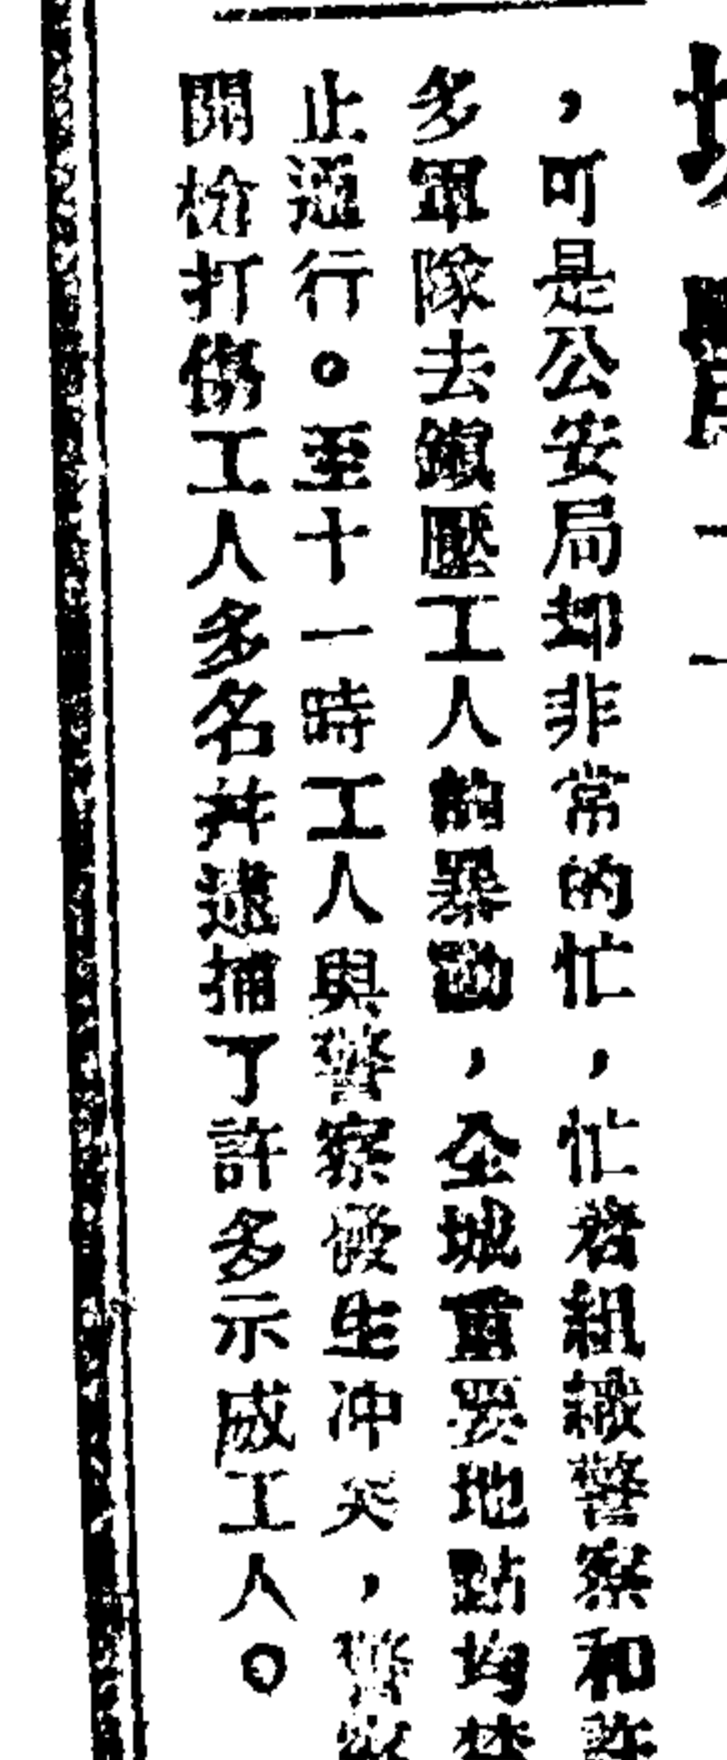 ，可是公安局却非常的忙，忙着組織警察和許
多軍隊去鎮壓工人的暴動，全城重要地點均禁
止通行。至十一時工人與警察發生冲突，警察
開槍打傷工人多名并逮捕了許多示威工人。